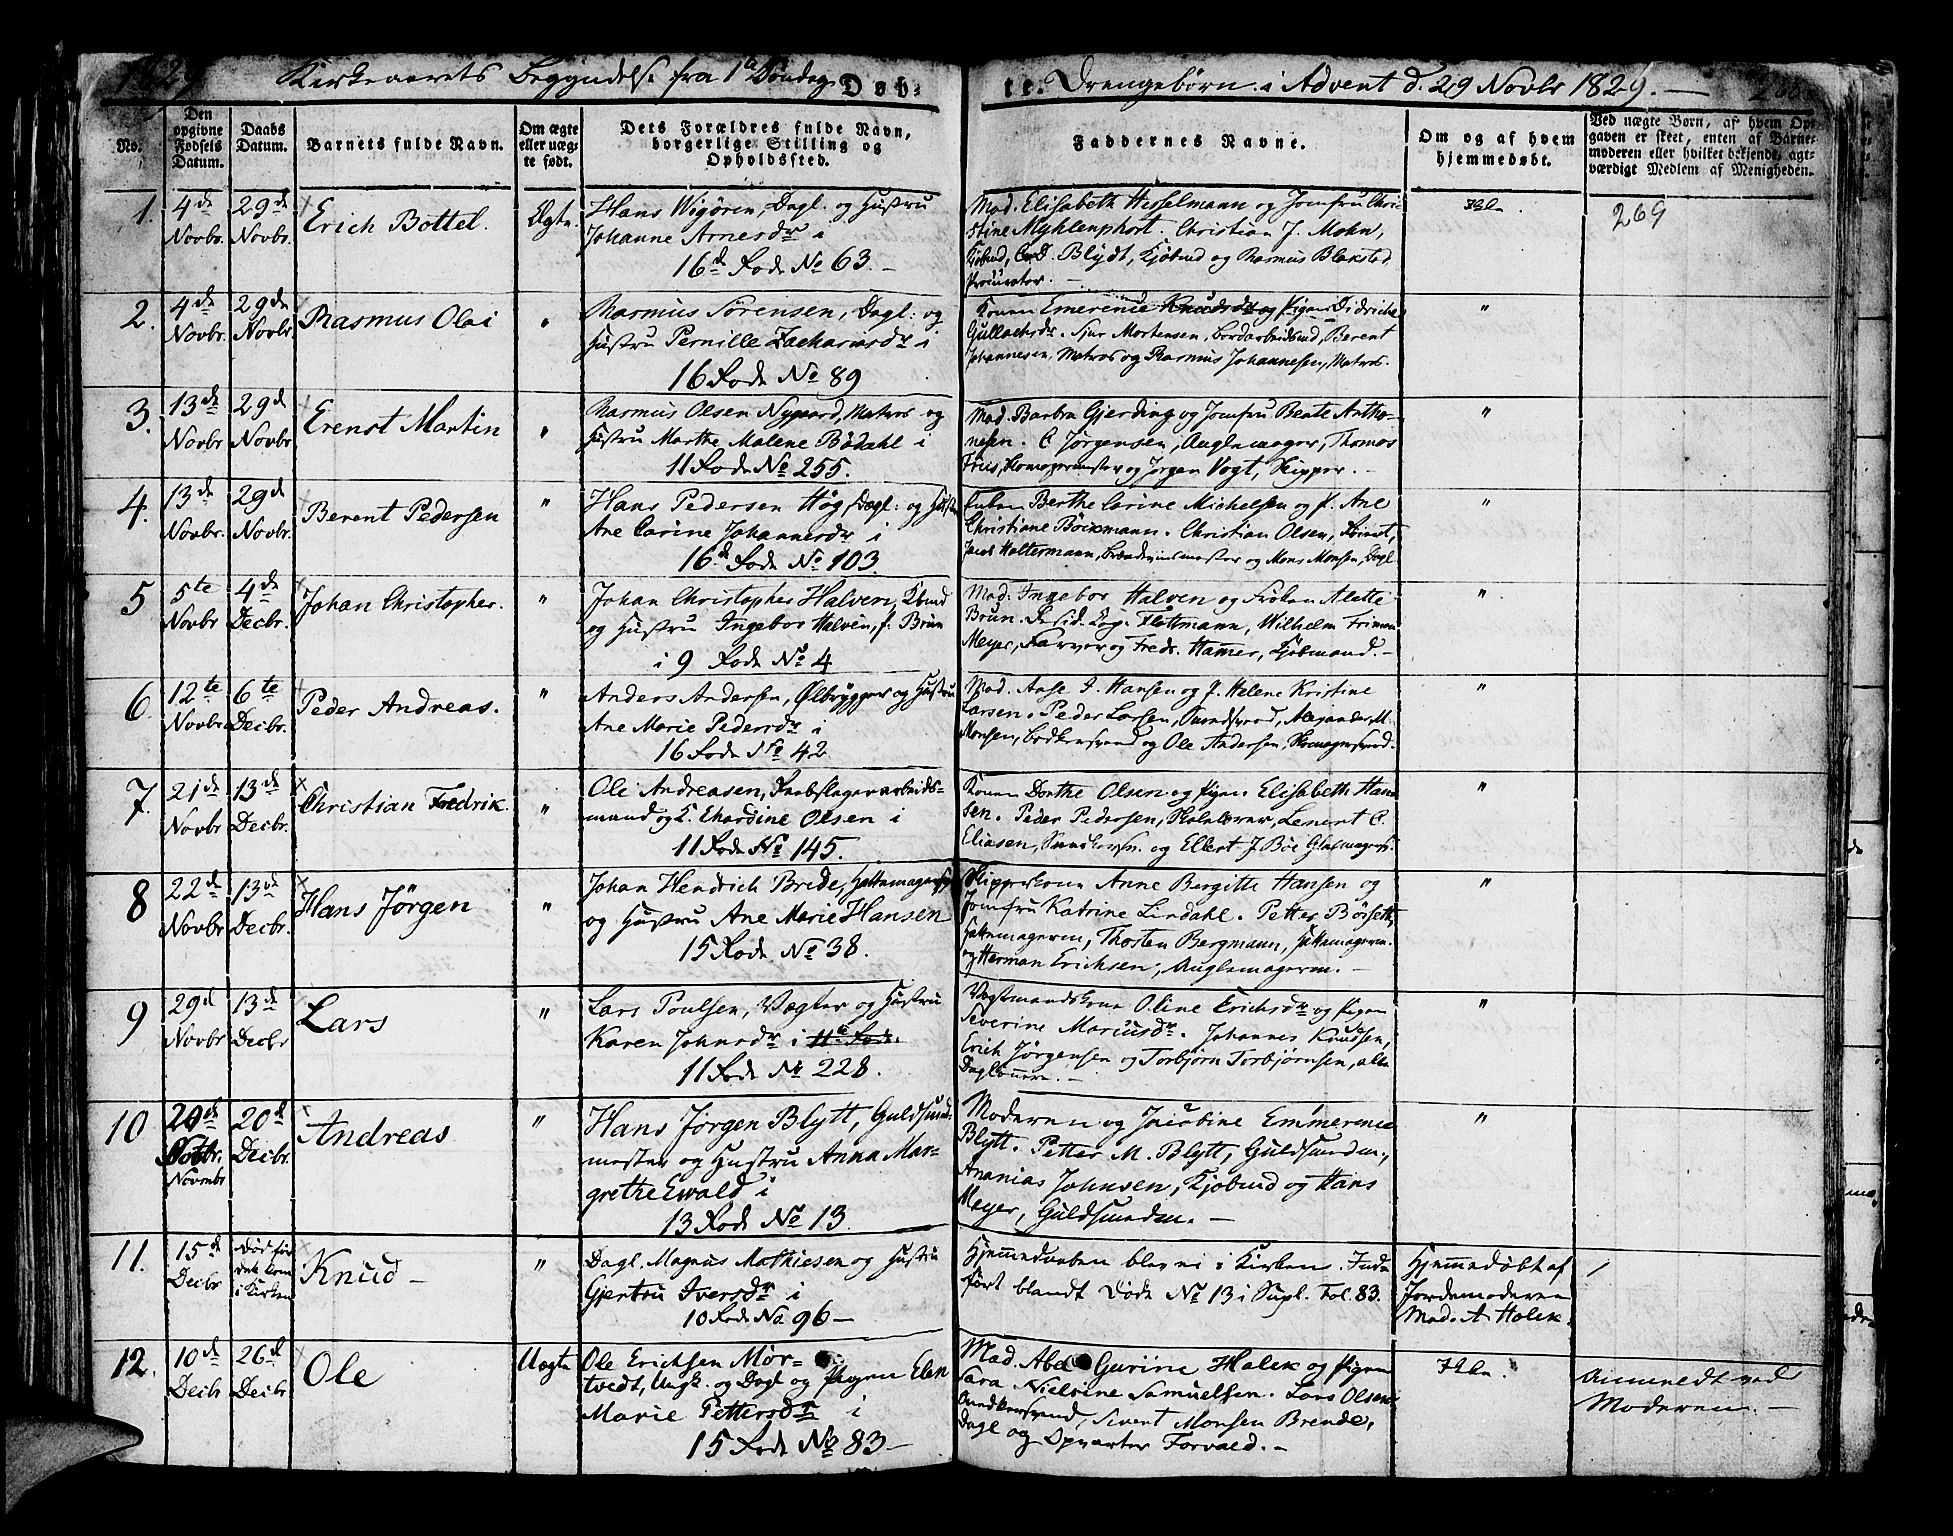 1829 Kirkeaarets Begyndelse fra 1te Søndag Døb-
te. Drengebørn i Advent d. 29 Novbr 1829. — 268
No.
Den opgivne Fødsels Datum.
Daabs Datum.
Barnets fulde Navn.
Om ægte eller uægte født.
Dets Forældres fulde Navn, borgerlige Stilling og Opholdssted.
Faddernes Navne.
Om og af hvem hjemmedøbt.
Ved uægte Børn, af hvem Opgaven er skeet, enten af Barnemoderen eller hvilket bekjendt, agtværdigt Medlem af Menigheden.
1. 4de Novbr. 29de Novbr. Erich Bottel. Ægte.
Hans Wigøren, Dagl. og Hustru
Johanne Arnesdr i
16de Rode No 63. —
Mad. Elisabeth Hesselmann og Jomfru Chri-
stine Myhlenphort. Christian J. Mohn,
Kjøbmd, Blydt, Kjøbmd og Rasmus Blaksted,
Procurator. —
269
2. 4de Novbr. 29de Novbr Rasmus Olai "
Rasmus Sørensen, Dagl: og
Hustru Pernille Zachariasdr i
16 Rode No 89
Konen Emerence Knudsdr og Pigen Didricke
Gullachsdr. Sjur Mortensen, Berent
Johannesen, Matros og Rasmus Johannesen, Matros.
"
3. 13de Novbr 29de Novbr Erenst Martin "
Rasmus Olsen Nygaard, Matros og
Hustru Marthe Malene Bødahl i
11 Rode No 255.
Mad. Barbra Gjerding og Jomfru Beate Antho-
nesen. C Jørgensen, Thomas
Friis, og Jørgen Vogt, Skipper. —
"
4. 13de Novbr. 29de Novbr. Berent Pedersen "
Hans Pedersen Høg, Dagl: og Hustru
Ane Carine Johannesdr i
16de Rode No 103.
Enken Berthe Carine Michelsen og P. Ane
Christiane Böckmann. Christian Olsen,
Jacob Holtermann, Brændeviinsmester og Mons Monsen, Dagl
"
5 5te Novbr 4de Decbr. Johan Christopher. "
Johan Christopher Halven, Kbmd
og Hustru Ingebor Halven, f. Brun
i 9 Rode No 4
Mad. Ingebor Halven og Frøken Alette
Brun. Flottmann, Wilhelm Friman
Meyer, Farver og Fredr. Hamer, Kjøbmand. —
"
6. 12te Novbr. 6te Decbr. Peder Andreas. "
Anders Andersen, Ølbrygger og Hustru
Ane Marie Pedersdr i
16 Rode No 42
Mad. Aase J. Hansen og J. Helene Kristine
Larsen. Peder Larsen, Alexander M.
Monsen, Bødkersvend og Ole Andersen,
"
7. 21de Novbr. 13de Decbr. Christian Fredrik. "
Ole Andreasen, Reebslagerarbeids-
mand og K. Ehardine Olsen i
11 Rode No 145.
Konen Dorthe Olsen og Pigen Elisabeth Han-
sen. Peder Pedersen, Skolelærer, Lenert C.
Eliasen, og Ellert J. Böe
"
8 22de Novbr 13de Decbr. Hans Jørgen "
Johan Hendrich Brede, Hattemagersv.
og Hustru Ane Marie Hansen
15 Rode No 38.
Skipperkone Anne Bergitte Hansen og
Jomfru Katrine Lindahl. Petter Böiseth,
Hattemagersv., Thosten Bergmann, Hattemagersv.
og Herman Erichsen, —
"
9 29d Novbr 13de Decbr Lars "
Lars Poulsen, Vægter og Hustru
Karen Johnsdr i 11te Rode
11 Rode No 228.
Vogtmandskone Oline Erichsdr og Pigen
Severine Mariusdr. Johannes Knudsen,
Erich Jørgensen og Torbjørn Torbjørnsen, alle
Daglønnere. —
"
10 20de Octbr. Novmbr 20d Decbr. Andreas "
Hans Jørgen Blytt, Guldsmed-
mester og Hustru Anna Mar-
grethe Ewald i
13 Rode No 13
Moderen og Jacobine Emmerence
Blytt. Petter M. Blytt, Guldsmedm.,
Ananias Johnsen, Kjøbmd og Hans
Meyer, Guldsmedm. —
"
11. 15de Decbr Død før det kom i Kirken Knud —  "
Dagl. Magnus Mathiesen og Hustru
Gjertru Iversdr i
10 Rode No. 96 —
Hjemmedaaben blev ei i Kirken. Ind-
ført blandt Døde No 13 i Supl. Fol. 83.
Hjemmedøbt af
Jordemoderen
Mad. A Holck.
12. 10de Decbr 26d Decbr Ole Uægte
Ole Erichsen Mør-
tvedt, Ungk. og Dagl og Pigen Elen
Marie Pettersdr i
15 Rode No 83 —
Mad. Abel Gurine Holck og Pigen
Sara Nielsine Samuelsen. Lars Olsen,
Sivert Monsen Brende,
Dagl og Opvarter Forvald. —
Anmeldt ved
Moderen. —